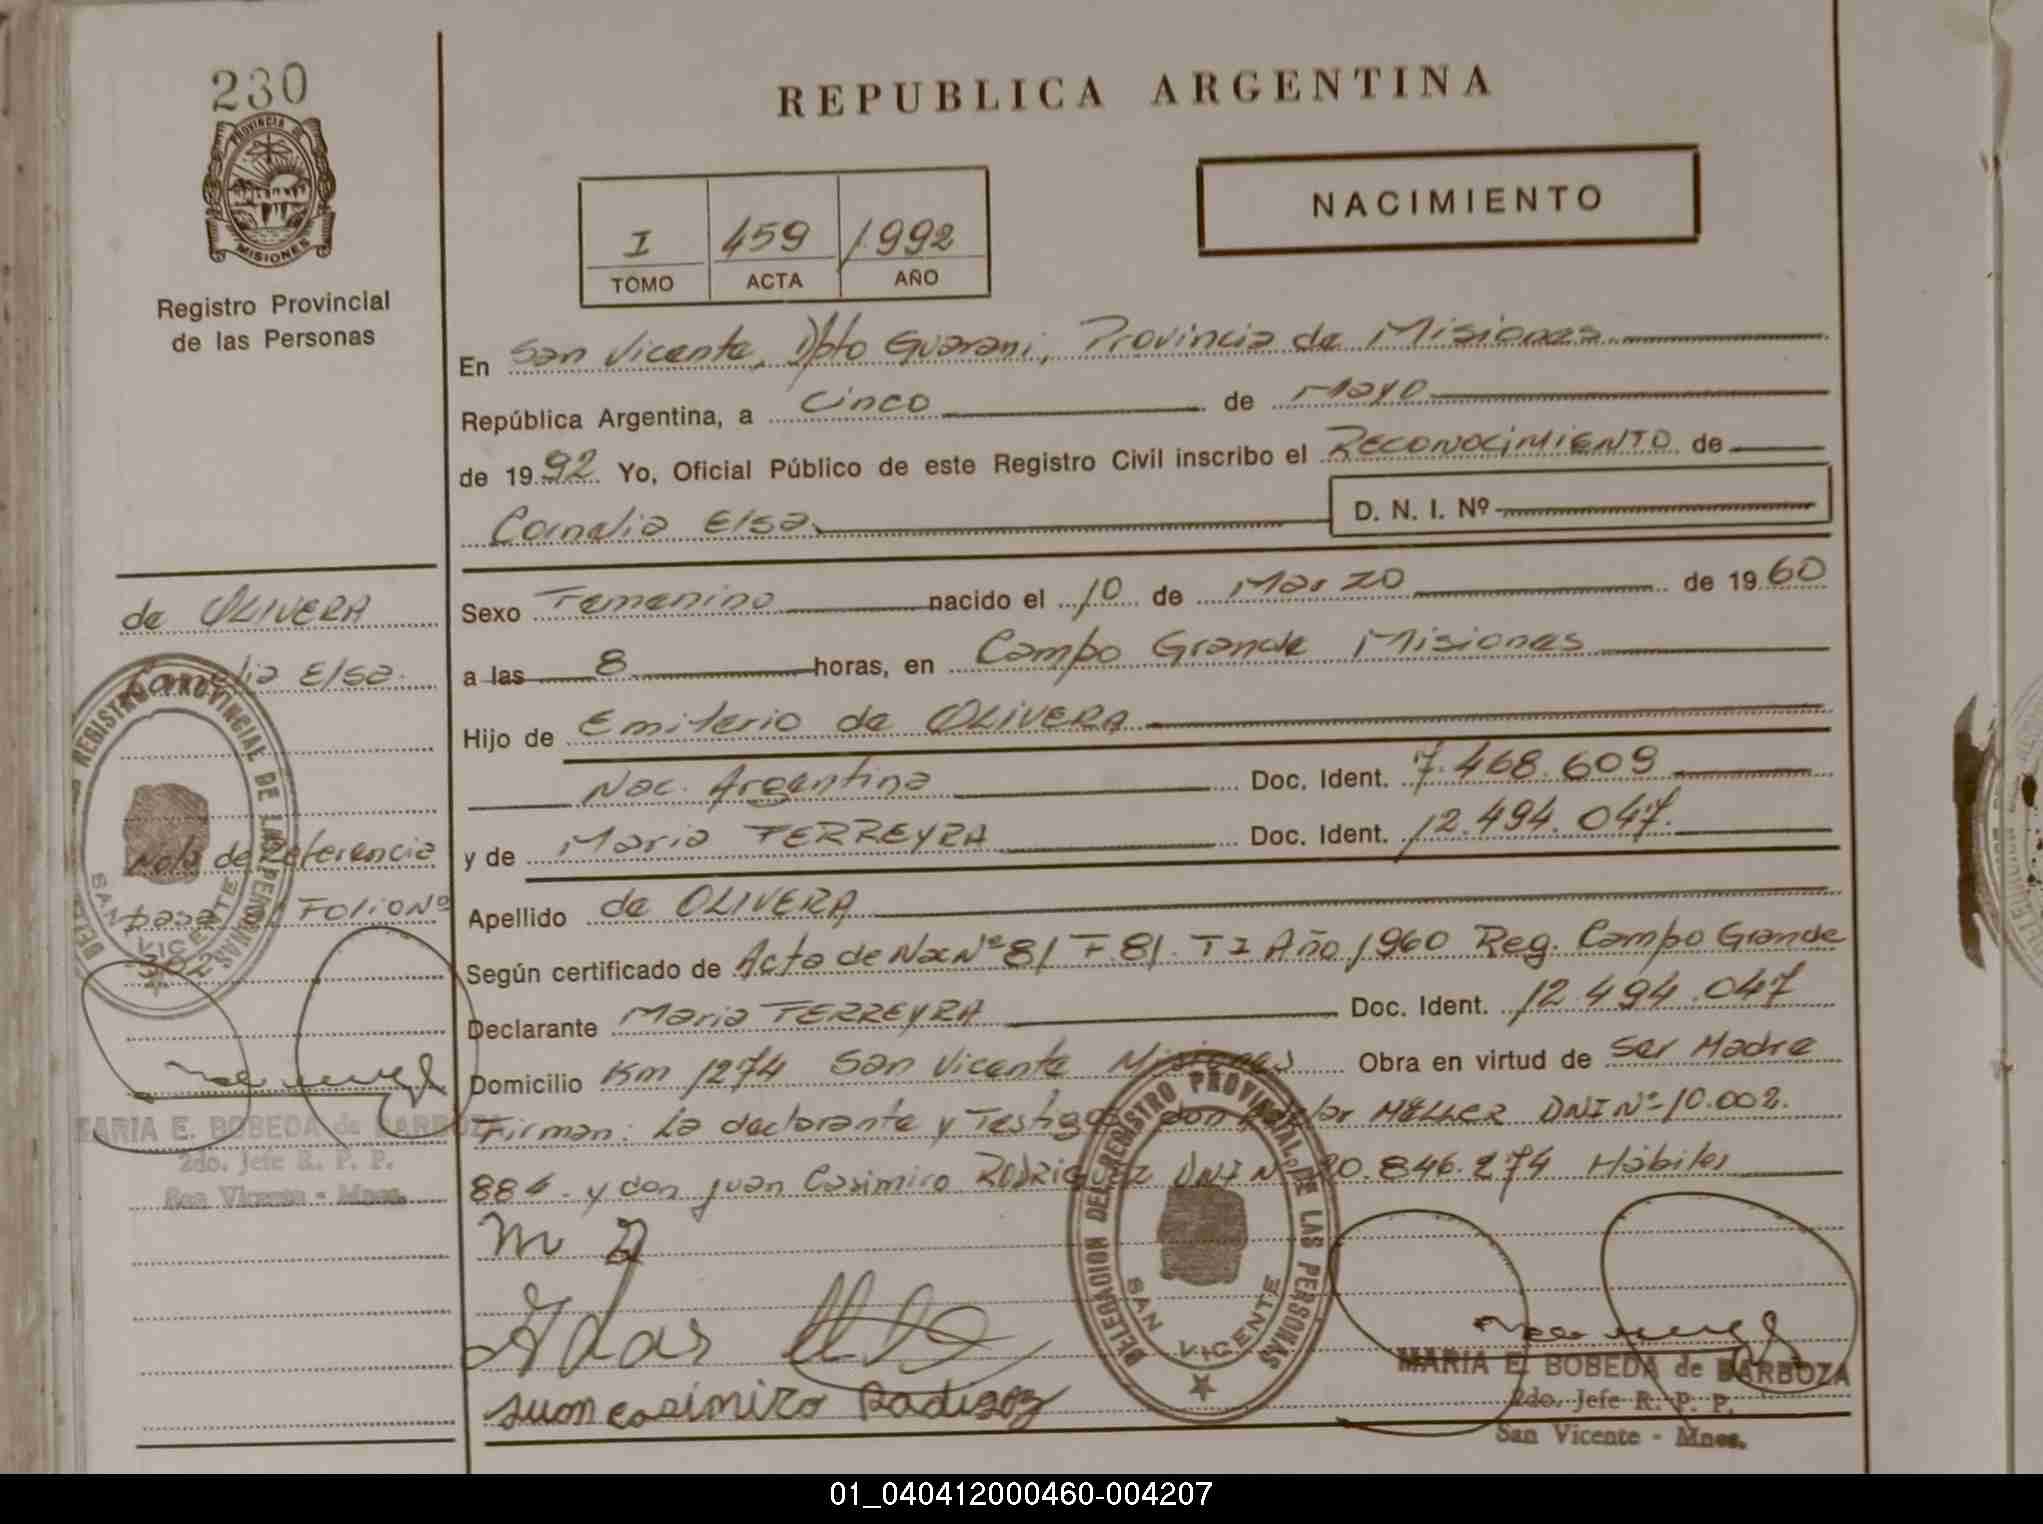 230
PROVINCIA DE
MISIONES
Registro Provincial
de las Personas
REPUBLICA ARGENTINA
NACIMIENTO
I 459 1992
TOMO ACTA AÑO
En San Vicente, Dpto Guarani, Provincia de Misiones
República Argentina, a Cinco de Mayo
de 1992 Yo, Oficial Público de este Registro Civil inscribo el RECONOCIMIENTO de
Cornelia Elsa D. N. I. Nº
Sexo Femenino nacido el 10 de Marzo de 1960
a las 8 horas, en Campo Grande Misiones
Hijo de Emiterio de OLIVERA
Nac. Argentina Doc. Ident. 7.468.609
y de Maria FERREYRA Doc. Ident. 12.494.047.
Apellido de OLIVERA
Según certificado de Acta de Nac Nº 81 F.81. T I Año 1960 Reg. Campo Grande
Declarante Maria FERREYRA Doc. Ident. 12.494.047
Domicilio Km 1274 San Vicente Misiones Obra en virtud de Ser Madre
Firman: La declarante y Testigos don MÜLLER DNI Nº 10.002.
884 y don Juan Casimiro RODRIGUEZ DNI Nº 20.846.274 Hábiles
Juan casimiro
DELEGACION DEL REGISTRO PROVINCIAL DE LAS PERSONAS
SAN VICENTE
MARIA E. BOBEDA de BARBOZA
2do. Jefe R. P. P.
San Vicente - Mnes.
de OLIVERA
Cornelia Elsa.
Nota de Referencia
pasa Folio Nº
302
REGISTRO PROVINCIAL DE LAS PERSONAS
SAN VICENTE
MARIA E. BOBEDA de BARBOZA
2do. Jefe R. P. P.
San Vicente - Mnes.
01_040412000460-004207